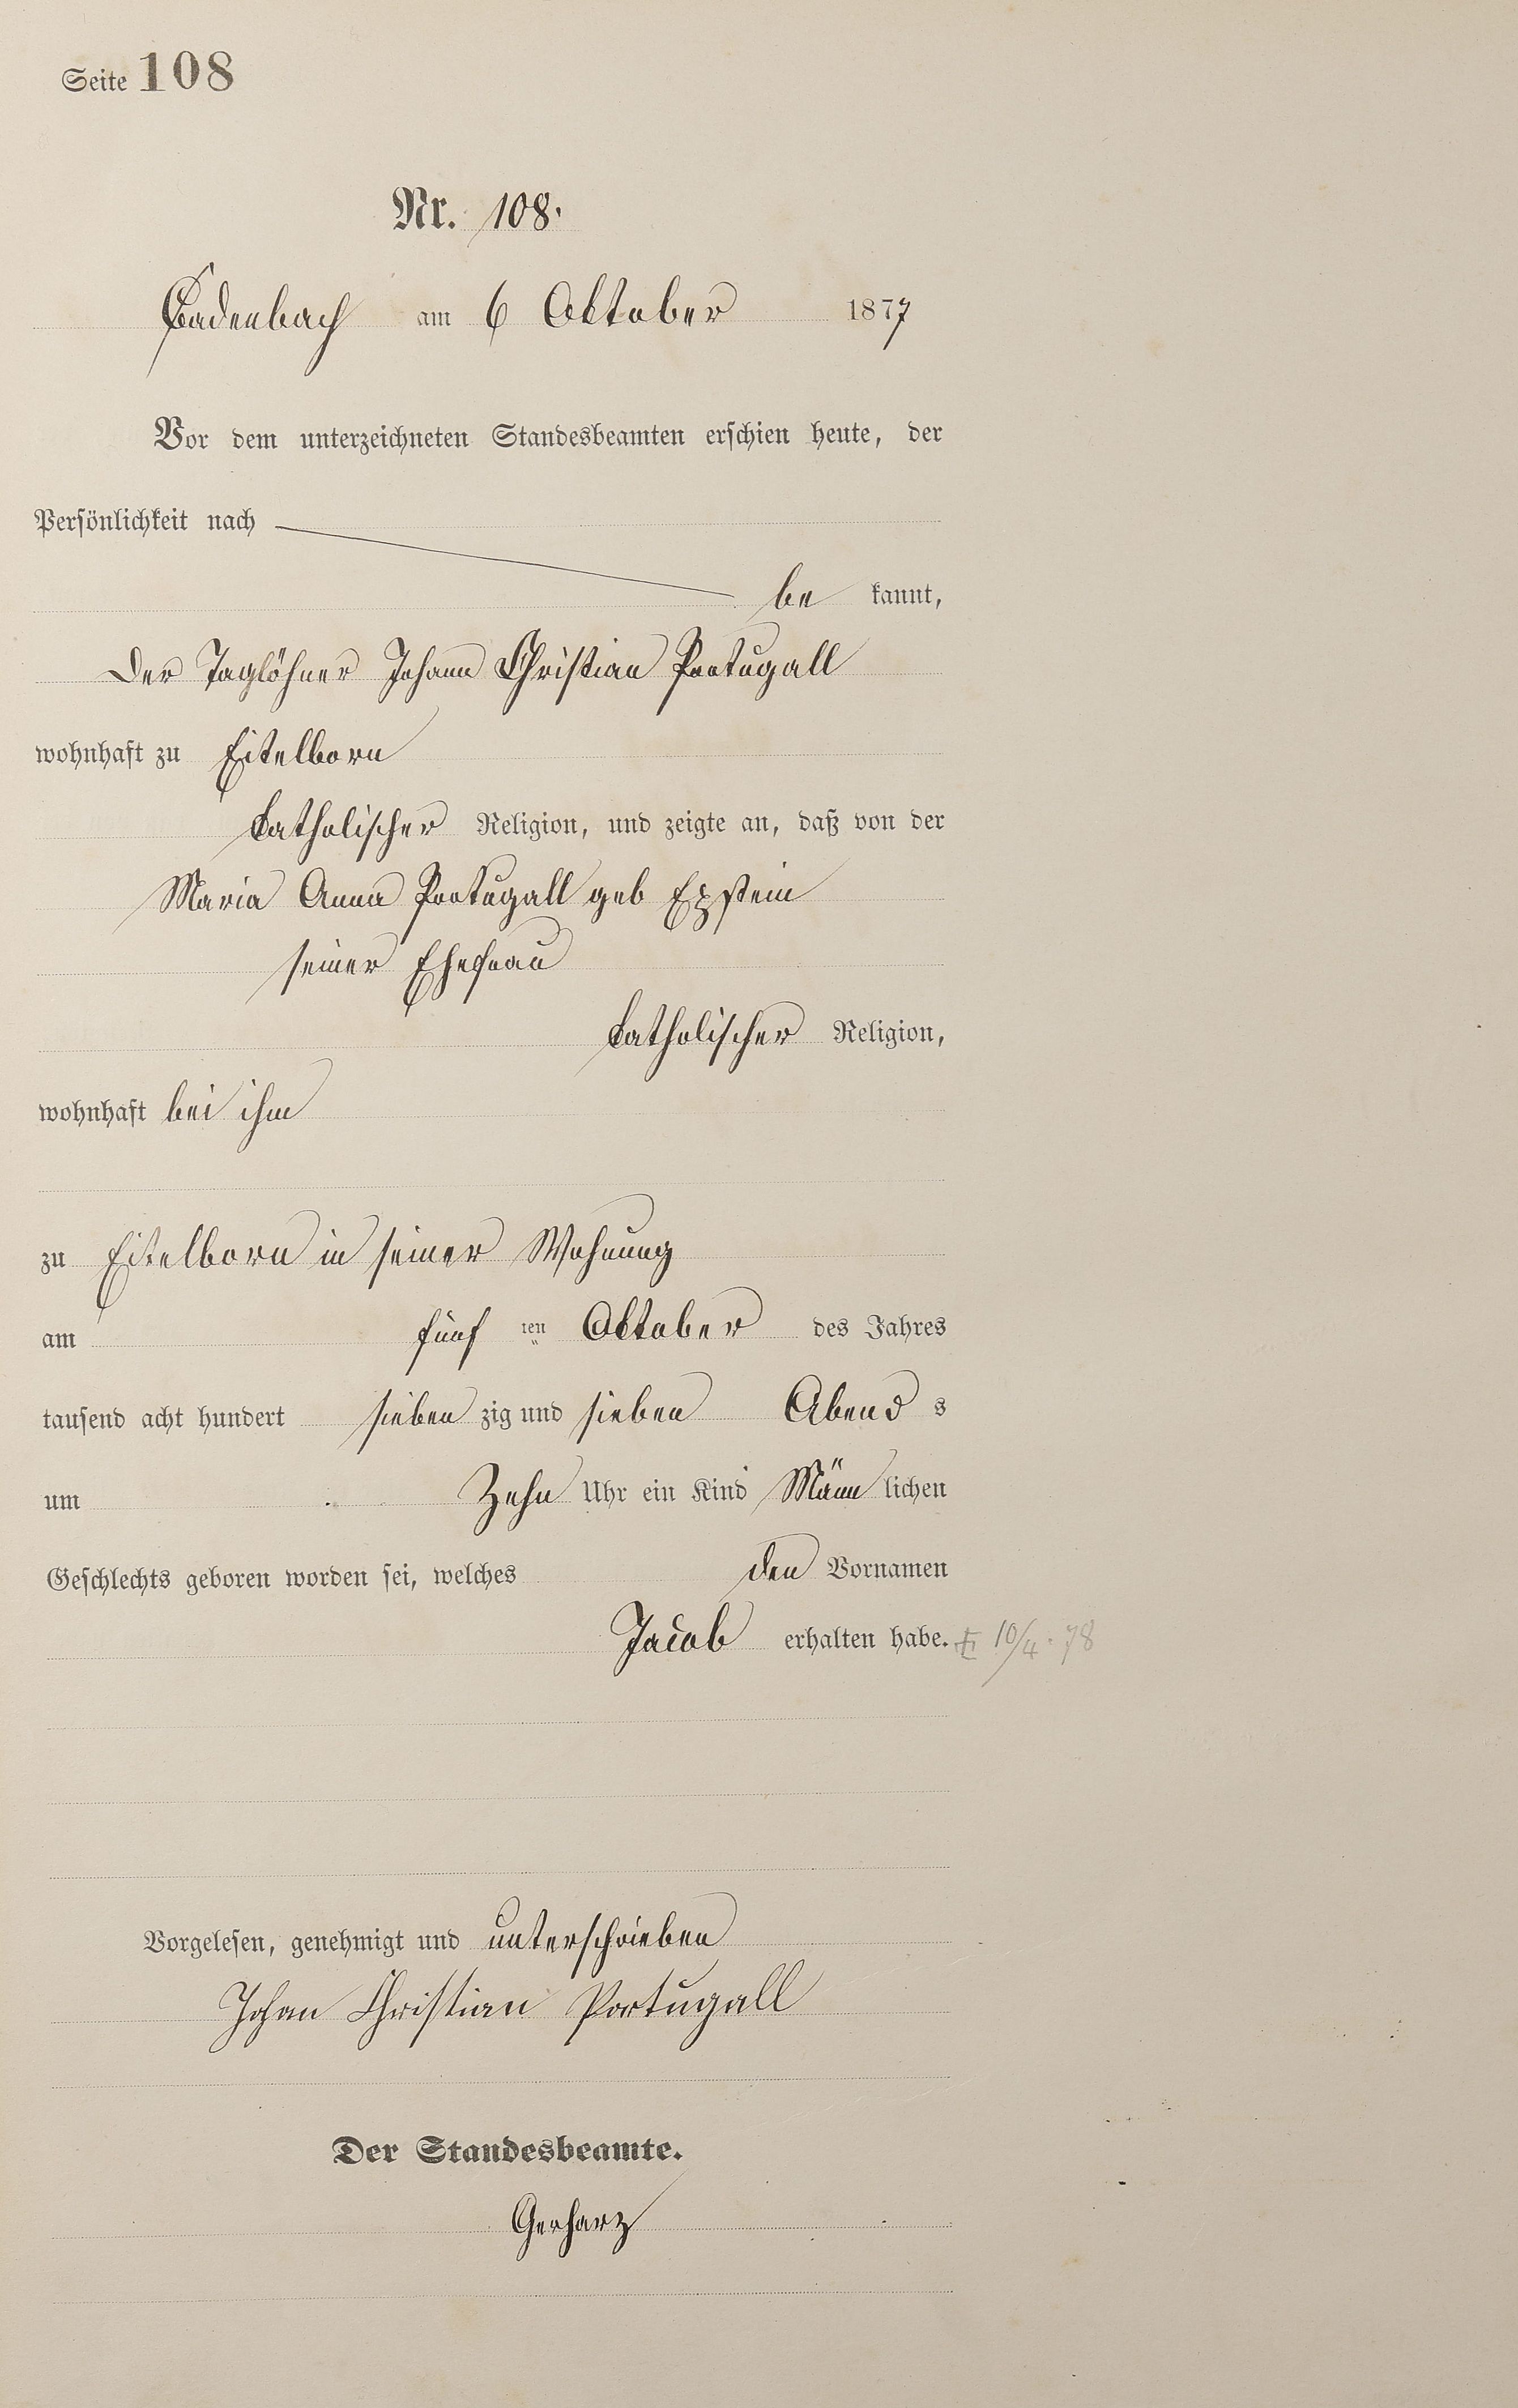 Seite 108
Nr. 108.
Cadenbach am 6 Oktober 1877
Vor dem unterzeichneten Standesbeamten erschien heute, der
Persönlichkeit nach
be kannt,
Der Taglöhner Johann Christian Portugall
wohnhaft zu Eitelborn
katholischer Religion, und zeigte an, daß von der
Maria Anna Portugall geb Epstein
seiner Ehefrau
katholischer Religion,
wohnhaft bei ihm
zu Eitelborn in seiner Wohnung
am fünf ten Oktober des Jahres
tausend acht hundert sieben zig und sieben Abend s
um Zehn Uhr ein Kind Männ lichen
Geschlechts geboren worden sei, welches den Vornamen
Jacob erhalten habe. 10/4. 78
Vorgelesen, genehmigt und unterschrieben
Johan Christian Portugall
Der Standesbeamte.
Gerharz